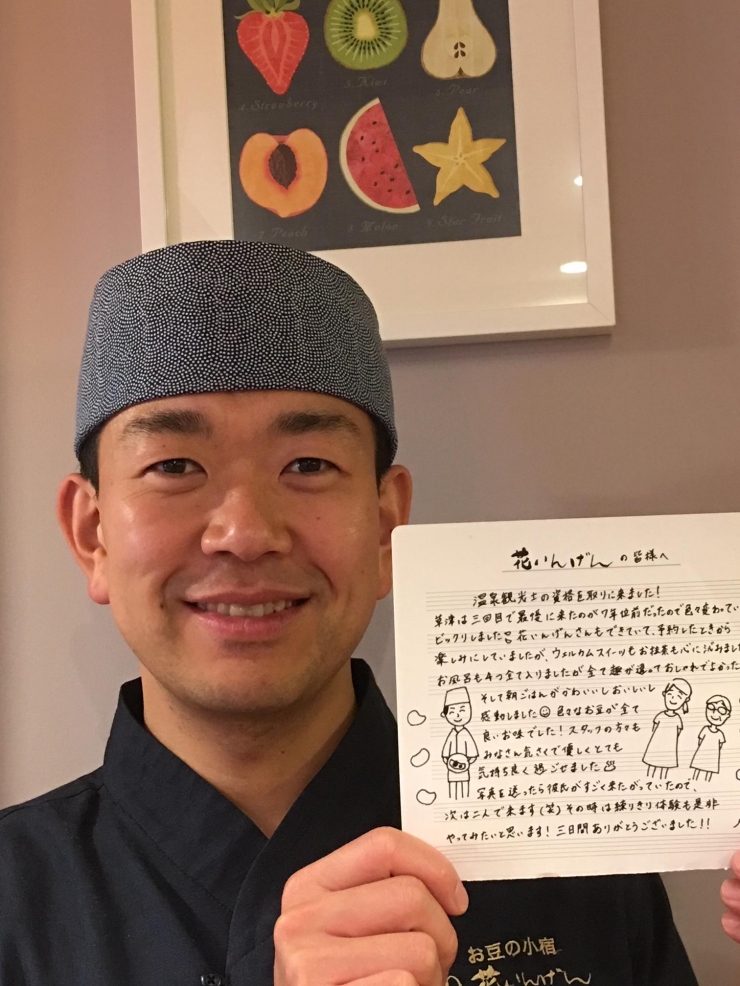 4. Strawberry
5. Kiwi
6. Pear
7. Peach
8. Melon
9. Star Fruit
花いんげん の皆様へ
温泉観光士の資格を取りに来ました!
草津は三回目で最後に来たのが7年位前だったので色々変わってい
ビックリしました 花いんげんさんもできていて、予約したときから
楽しみにしていましたが、ウェルカムスイーツもお抹茶も心に沁みまし
お風呂も4つ全て入りましたが全て趣が違っておしゃれでよかった
そして朝ごはんがかわいいしおいしいし
感動しました 色々なお豆が全て
良いお味でした! スタッフの方々も
みなさん気さくで優しくとても
気持ち良く過ごせました
写真を送ったら彼氏がすごく来たがっていたので、
次は二人で来ます(笑) その時は練りきり体験も是非
やってみたいと思います! 三日間ありがとうございました!!
お豆の小宿
花いんげん